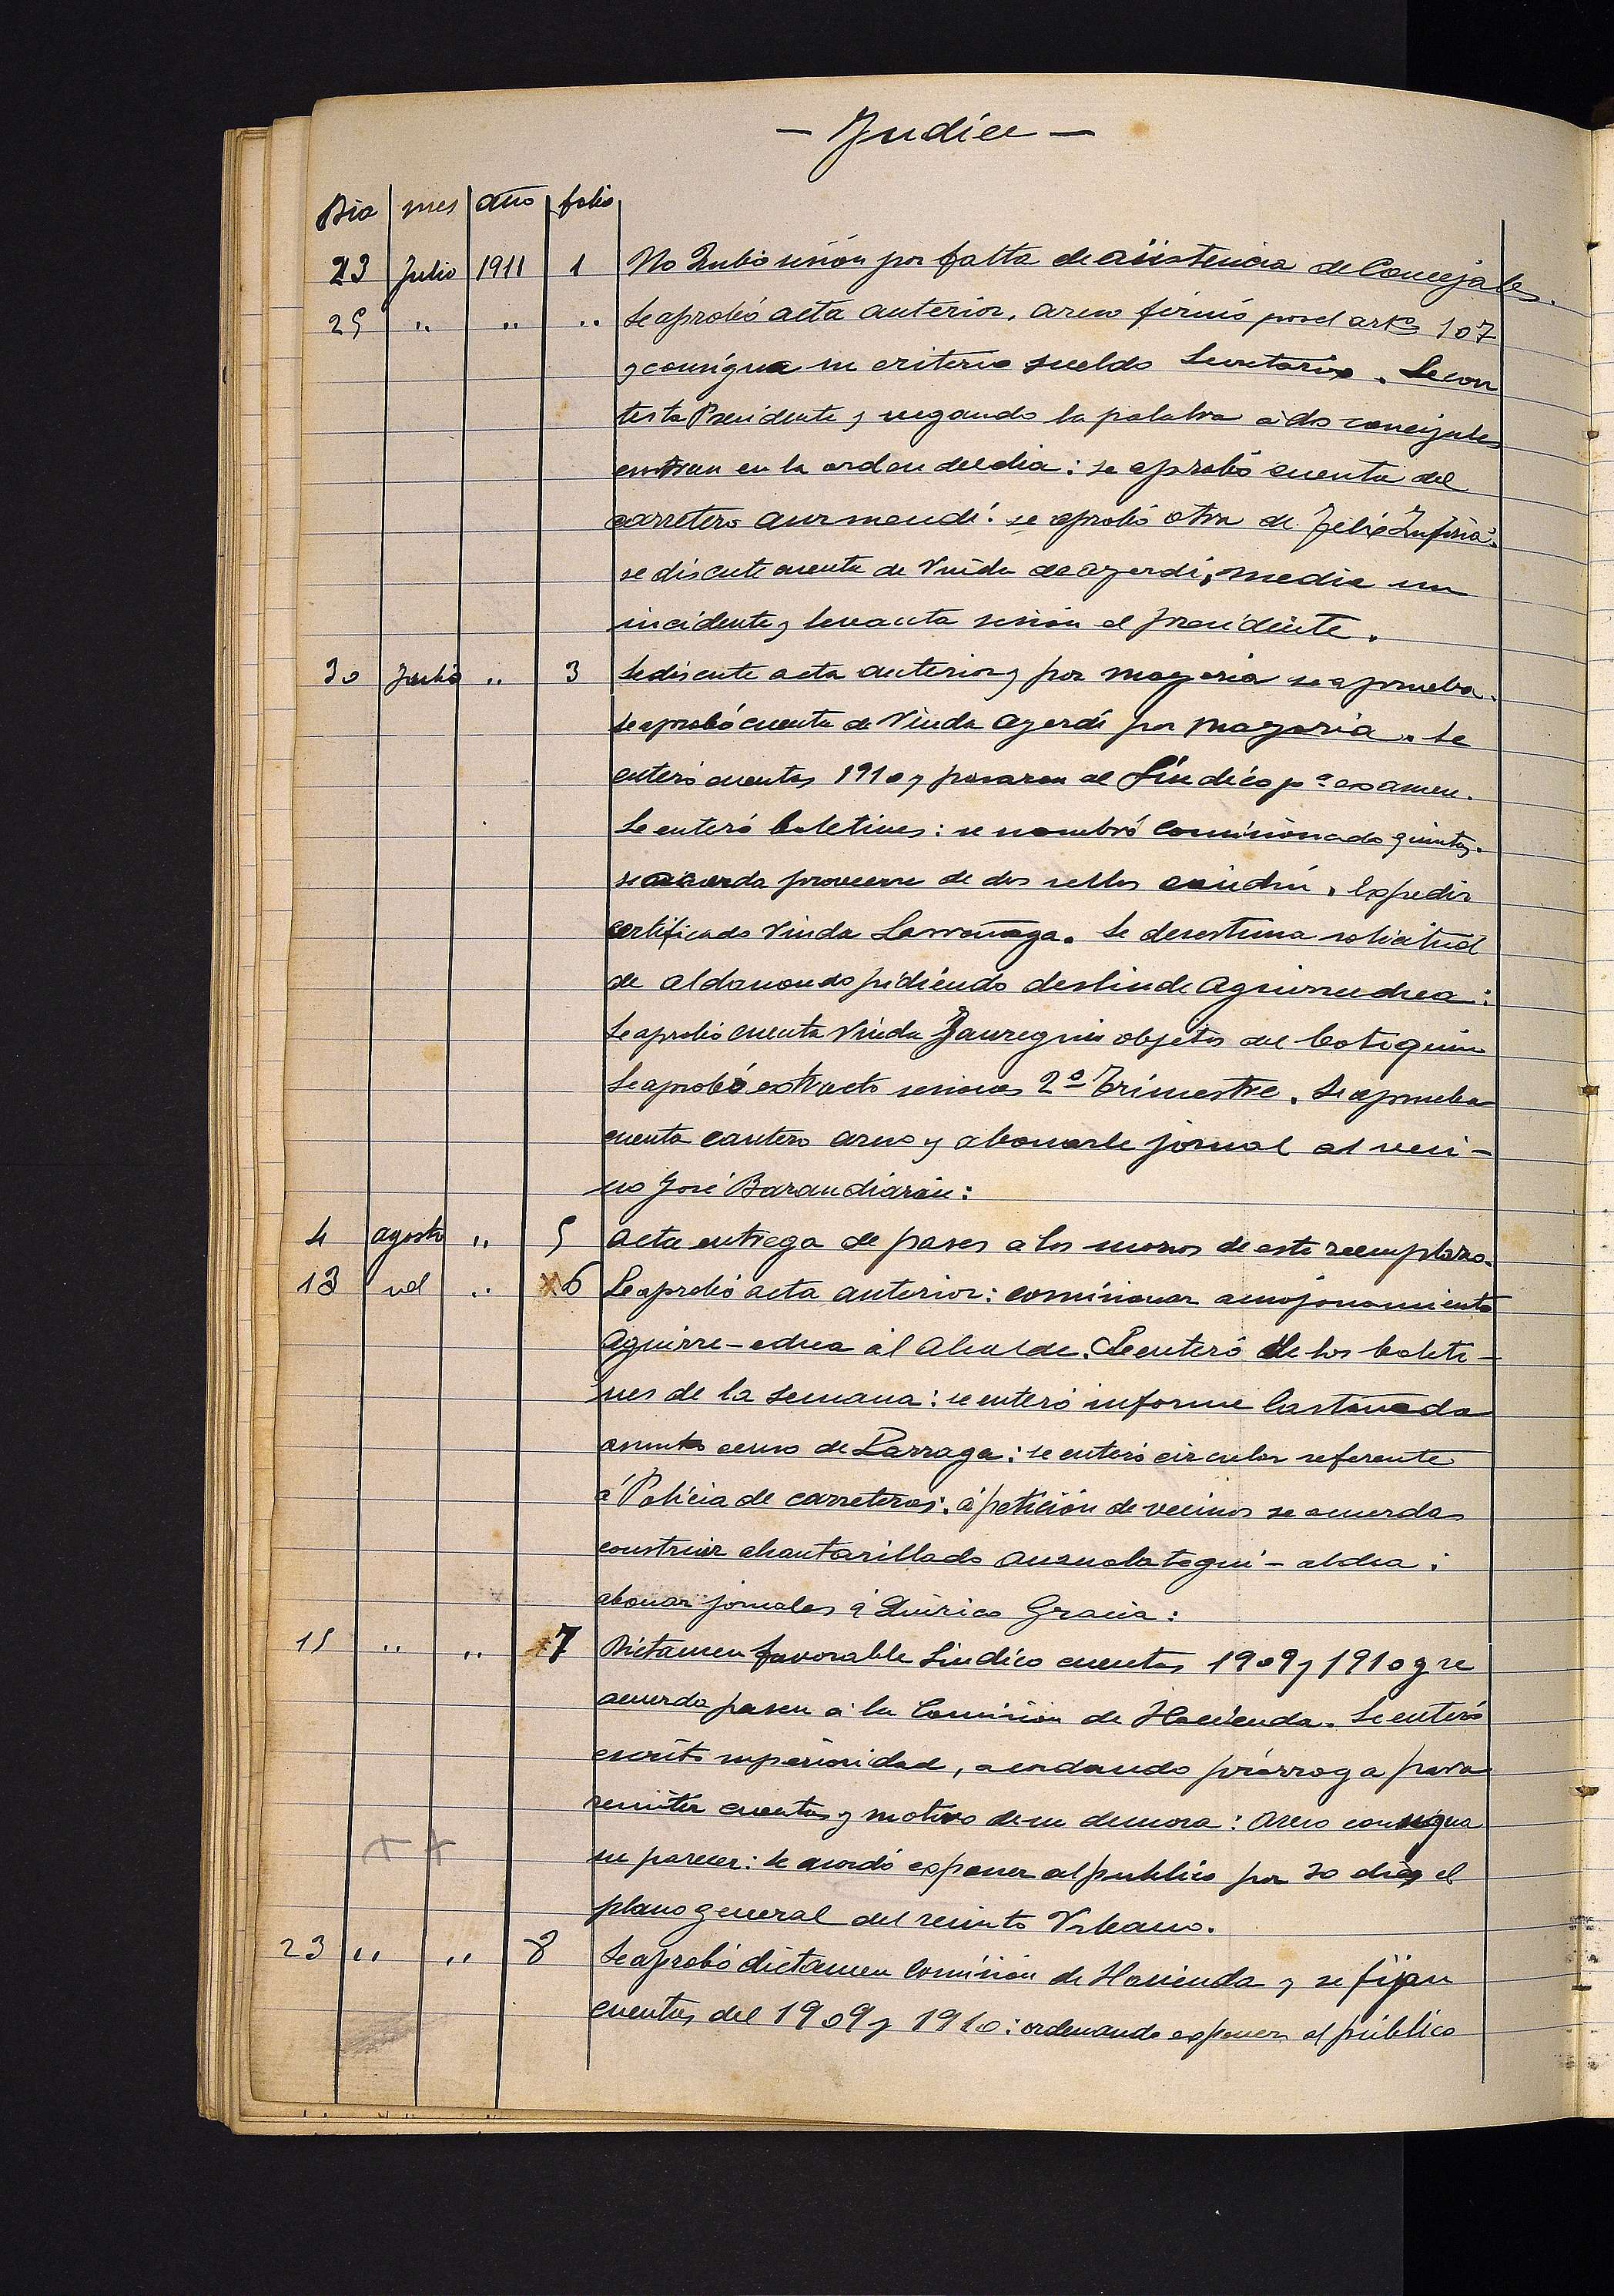 — Indice —
Dia mes año folio
23 Julio 1911 1 No hubo sesión por falta de asistencia de Concejales.
25 " " " Se aprobó acta anterior. Areso firmó por el artº 107
y consigna su criterio sueldo Secretario. Le con
testa Presidente y negando la palabra a dos concejales
entran en la orden del dia: se aprobó cuenta del
carretero Aurmendi: se aprobó otra de Felix
se discute cuenta de Viuda de Ayerdi, media un
incidente y levanta sesión el presidente.
30 Julio " 3 Se discute acta anterior y por mayoria se aprueba.
Se aprobó cuenta de Viuda Ayerdi por mayoria. Se
enteró cuentas 1910 y pasaron al Síndico pª examen.
Se enteró boletines: se nombró comisionado quintas.
se acuerda proveerse de dos sellos. Expedir
certificado Viuda Larrañaga. Se desestima solicitud
de Aldanondo pidiendo deslinde Aguirre-edrea:
Se aprobó cuenta Viuda Jauregui objetos del botiquin
Se aprobó extracto sesiones 2º Trimestre. Se aprueba
cuenta cantero Areso y abonarle jornal al veci-
no José Barandiarán:
4 agosto " 5 Acta entrega de pases a los mozos de este reemplazo.
13 id " 6 Se aprobó acta anterior: comisionar amojonamiento
Aguirre-edrea al Alcalde. Se enteró de los boleti-
nes de la semana: se enteró informe Castañeda
asunto censo de Larraga: se enteró circular referente
á Policia de carreteras: á petición de vecinos se acuerda
construir alcantarillado Ausualategui-aldea:
abonar jornales á Quirico Gracia:
15 " " 7 Dictamen favorable Sindico cuentas 1909 y 1910 y se
acuerda pasen á la Comisión de Hacienda. Se enteró
escrito superioridad, acordando prórroga para
remitir cuentas y motivo de su demora: Areso consigna
su parecer: Se acordó exponer al publico por 30 dias el
plano general del recinto Urbano.
23 " " 8 Se aprobó dictamen Comisión de Hacienda y se fijan
cuentas del 1909 y 1910: ordenando exponer al público